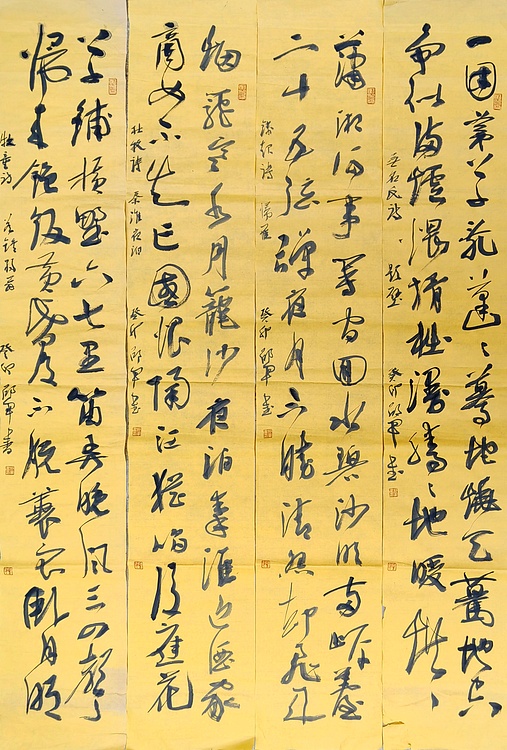 一團茅草乱蓬〻蓦地燒天蓦地空
争似满爐煨榾柮漫腾〻地暖烘〻
无名氏诗、题壁 癸卯 邱军书
潇湘何事等闲回水碧沙明两岸苔
二十五弦弹夜月不勝清怨却飛来
钱起诗 归雁 癸卯 邱军书
烟籠寒水月籠沙夜泊秦淮近酒家
商女不知亡國恨隔江犹唱后庭花
杜牧诗 秦淮夜泊 癸卯 邱军书
草铺横野六七里笛弄晚风三四声
归来饱饭黄昏后不脱蓑衣卧月明
牧童诗 答钟弱翁 癸卯 邱军书